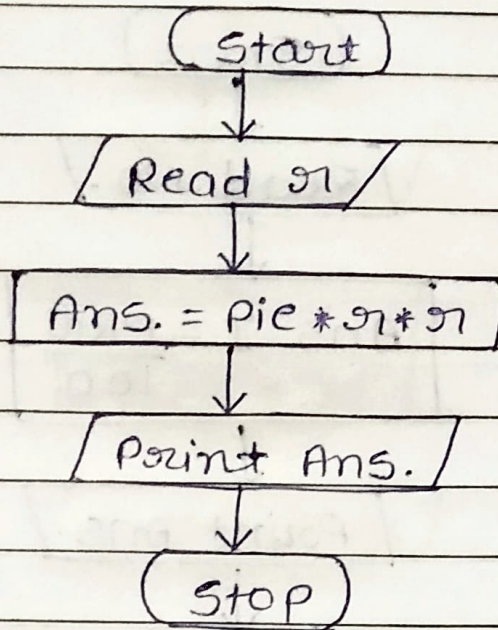 Start
Read r
Ans. = Pie * r * r
Print Ans.
Stop